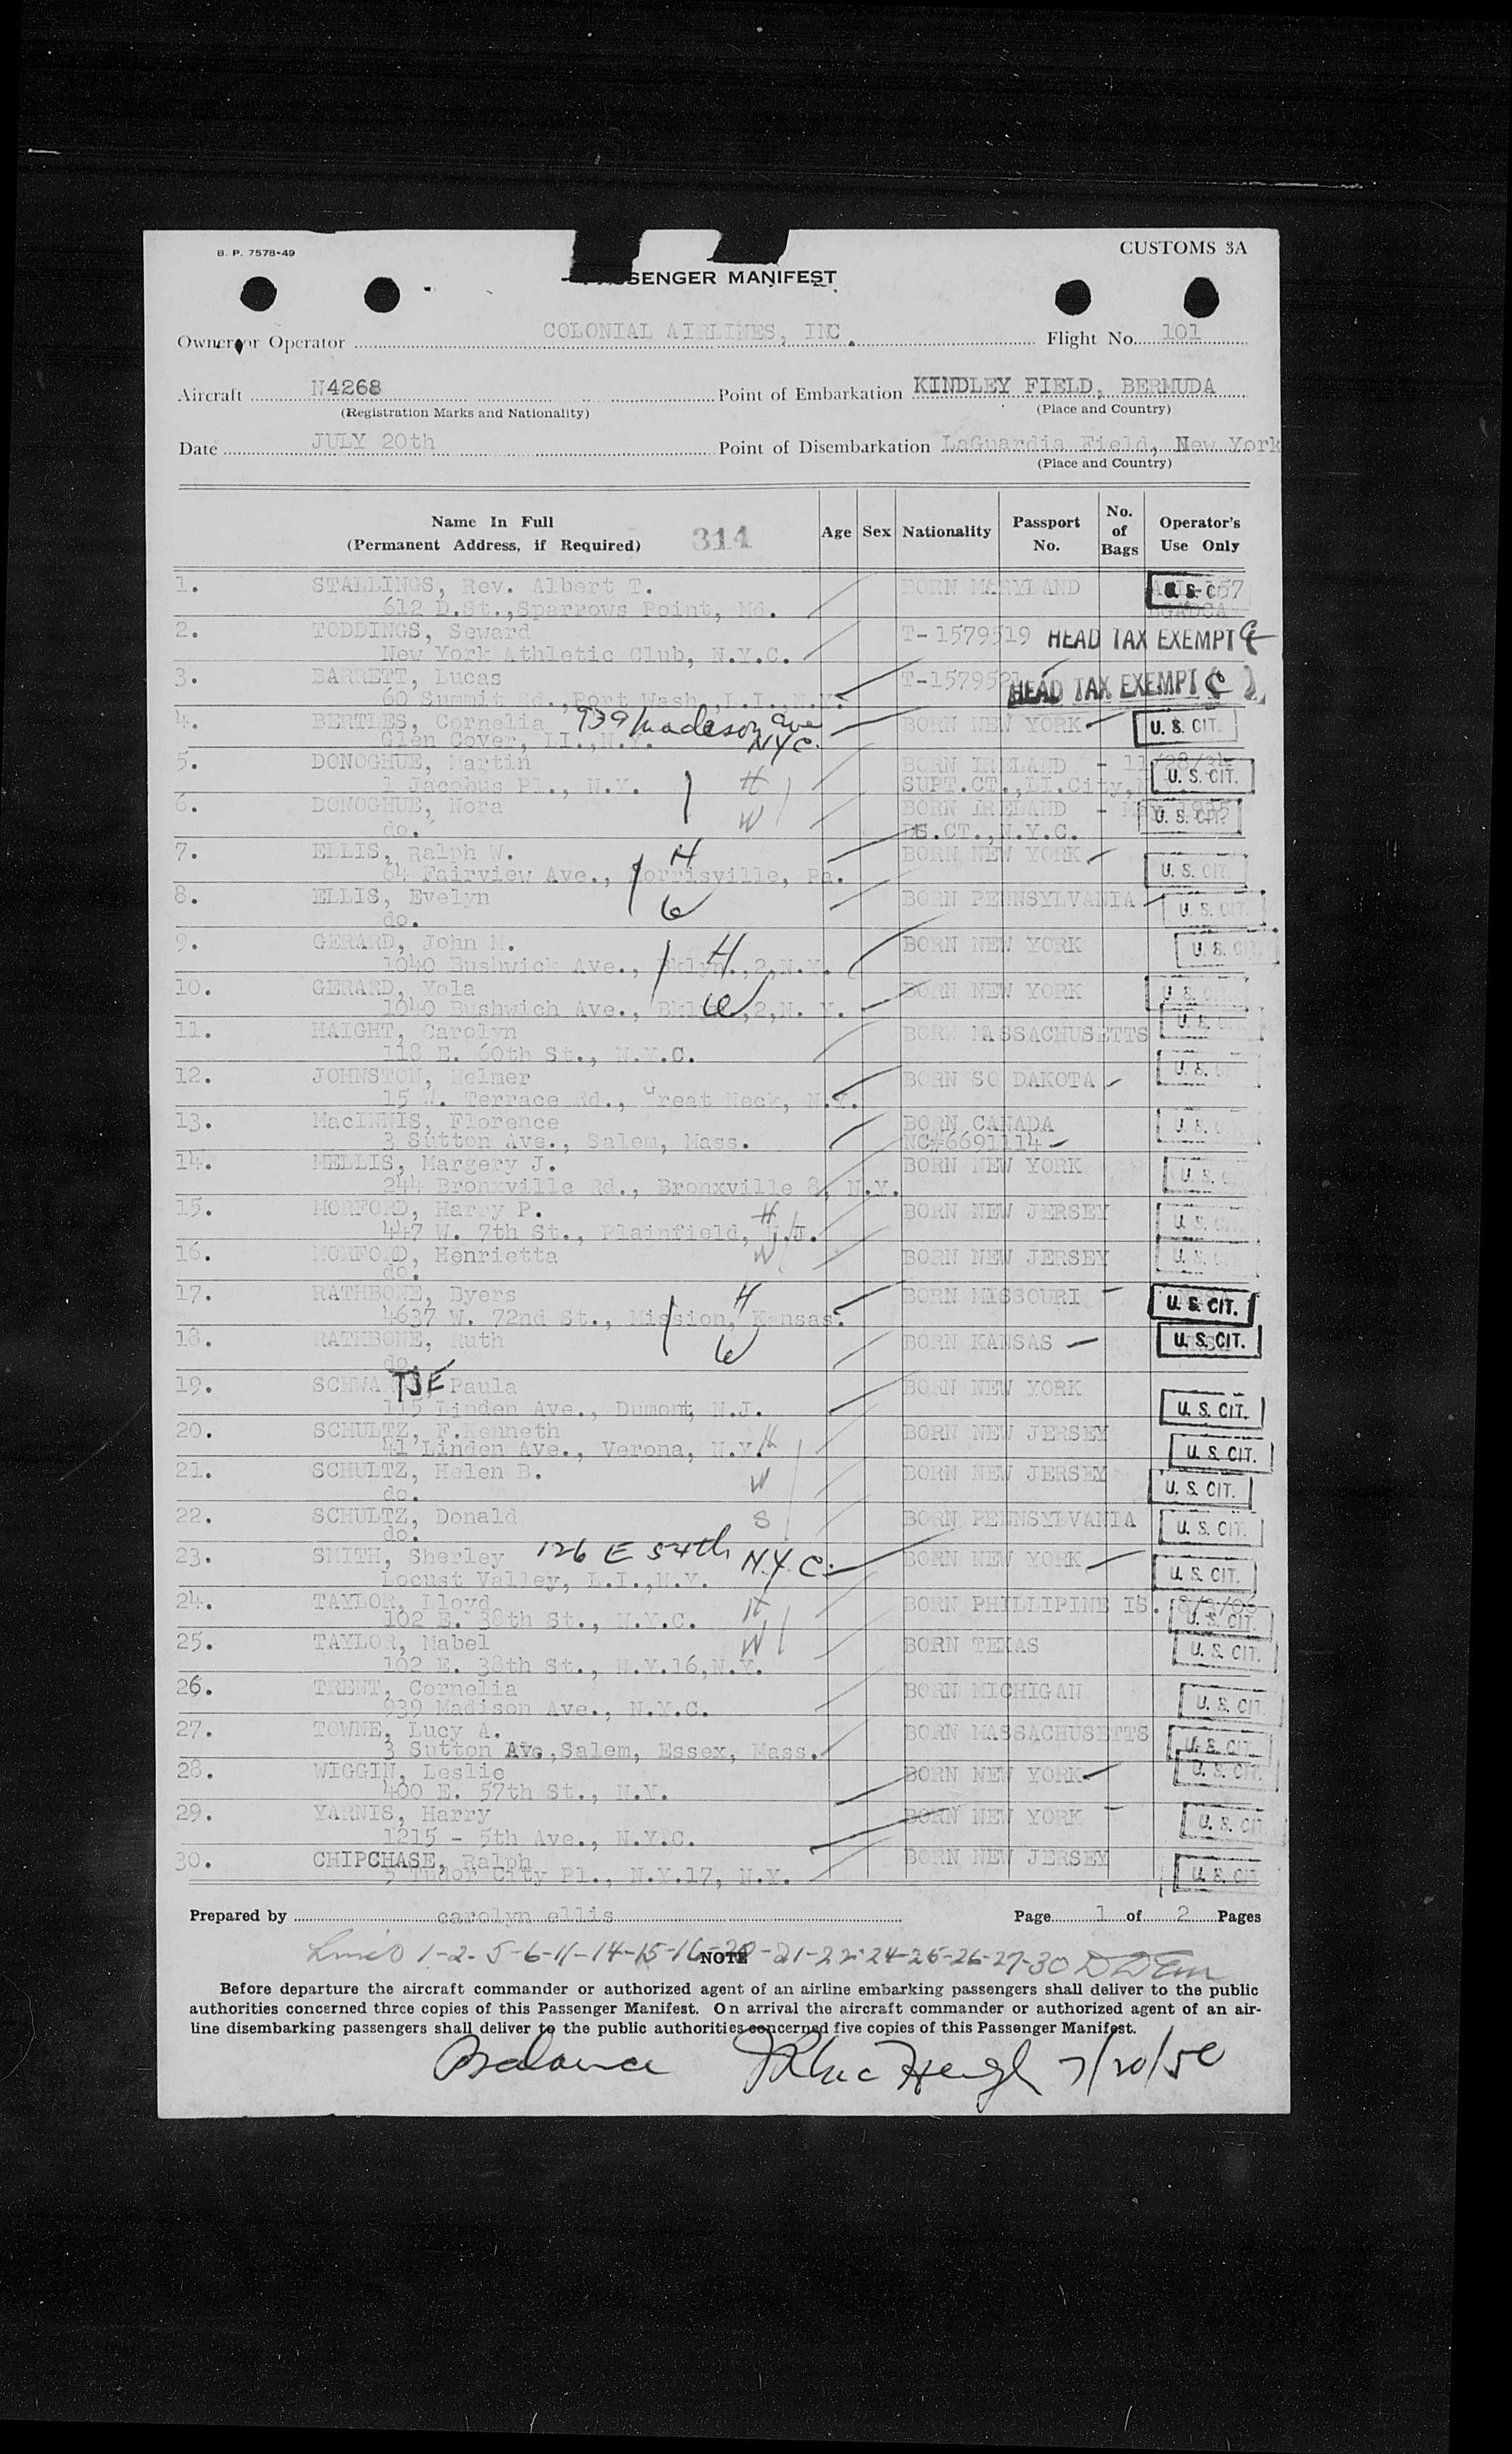 B. P. 7578-49
CUSTOMS 3A
SENGER MANIFEST
Owner or Operator COLONIAL AIRLINES, INC. Flight No. 101
Aircraft N4268 Point of Embarkation KINDLEY FIELD, BERMUDA
(Registration Marks and Nationality) (Place and Country)
Date JULY 20th Point of Disembarkation LaGuardia Field, New York
(Place and Country)
Name In Full (Permanent Address, if Required) 314 Age Sex Nationality Passport No. No. of Bags Operator's Use Only
1. STALLINGS, Rev. Albert T. BORN MARYLAND
612 D.St.,Sparrows Point, Md.
2. TODDINGS, Seward T-1579519 HEAD TAX EXEMPT
New York Athletic Club, N.Y.C.
3. BARRETT, Lucas HEAD TAX EXEMPT
60 Summit Rd.,Port Wash.,L.I.,N.Y.
4. BERTLES, Cornelia 939 Madison Ave BORN NEW YORK U. S. CIT.
Glen Cover, LI.,N.Y. NYC.
5. DONOGHUE, Martin BORN IRELAND -
1 Jacobus Pl., N.Y. H SUPT.CT.,LI.City, U. S. CIT.
6. DONOGHUE, Nora BORN IRELAND - U. S. CIT.
do. W N.Y.C.
7. ELLIS, Ralph W. H BORN NEW YORK
64 Fairview Ave., Morrisville, Pa. U. S. CIT.
8. ELLIS, Evelyn BORN PENNSYLVANIA U. S. CIT.
do. W
9. GERARD, John M. H BORN NEW YORK U. S. CIT.
1040 Bushwick Ave., Bklyn.,2,N.Y.
10. GERARD, Yola BORN NEW YORK U. S. CIT.
1040 Bushwich Ave., Bklyn.,2,N. Y. W
11. HAIGHT, Carolyn BORN MASSACHUSETTS U. S. C
118 E. 60th St., N.Y.C.
12. JOHNSTON, Helmer BORN SO DAKOTA U. S.
15 W. Terrace Rd., Great Neck, N.Y.
13. MacINNIS, Florence BORN CANADA U. S. C
3 Sutton Ave., Salem, Mass. NC#6691114
14. MELLIS, Margery J. BORN NEW YORK U. S. C
244 Bronxville Rd., Bronxville 8, N.Y.
15. MORFORD, Harry P. H BORN NEW JERSEY U. S. C
447 W. 7th St., Plainfield, N.J.
16. MORFORD, Henrietta W BORN NEW JERSEY U. S. C
do.
17. RATHBONE, Byers H BORN MISSOURI U. S. CIT.
4637 W. 72nd St., Mission, Kansas.
18. RATHBONE, Ruth W BORN KANSAS U. S. CIT.
do.
19. SCHWATJE, Paula BORN NEW YORK
115 Linden Ave., Dumont, N.J. U. S. CIT.
20. SCHULTZ, F.Kenneth BORN NEW JERSEY
41 Linden Ave., Verona, N.Y. H U. S. CIT.
21. SCHULTZ, Helen B. W BORN NEW JERSEY U. S. CIT.
do.
22. SCHULTZ, Donald S BORN PENNSYLVANIA U. S. CIT.
do.
23. SMITH, Sherley 126 E 54th N.Y.C. BORN NEW YORK U. S. CIT.
Locust Valley, L.I.,N.Y.
24. TAYLOR, Lloyd H BORN PHILLIPINE IS. U. S. CIT.
102 E. 38th St., N.Y.C.
25. TAYLOR, Mabel W BORN TEXAS U. S. CIT.
102 E. 38th St., N.Y.16,N.Y.
26. TRENT, Cornelia BORN MICHIGAN U. S. CIT
939 Madison Ave., N.Y.C.
27. TOWNE, Lucy A. BORN MASSACHUSETTS U. S. CIT
3 Sutton Ave,Salem, Essex, Mass.
28. WIGGIN, Leslie BORN NEW YORK U. S. CIT.
400 E. 57th St., N.Y.
29. YARNIS, Harry BORN NEW YORK U. S. CIT
1215 - 5th Ave., N.Y.C.
30. CHIPCHASE, Ralph BORN NEW JERSEY U. S. CIT
5 Tudor City Pl., N.Y.17, N.Y.
Prepared by carolyn ellis Page 1 of 2 Pages
1-2-5-6-11-14-15-16-20-21-22-24-25-26-27-30
NOTE
Before departure the aircraft commander or authorized agent of an airline embarking passengers shall deliver to the public
authorities concerned three copies of this Passenger Manifest. On arrival the aircraft commander or authorized agent of an air-
line disembarking passengers shall deliver to the public authorities concerned five copies of this Passenger Manifest.
Balance 7/20/50